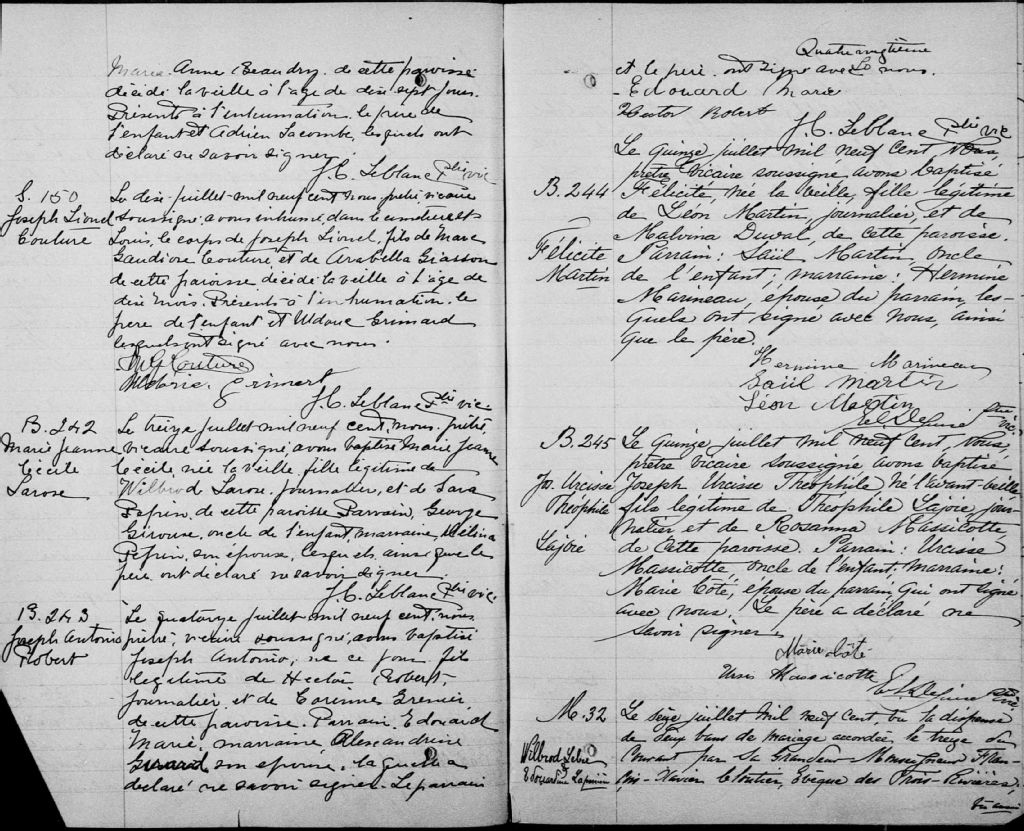 Marie Anne Beaudry de cette paroisse
décédé la veille à l'age de dix sept jours.
Présents à l'inhumation, le père de
l'enfant et Adrien Lacombe, lesquels ont
déclaré ne savoir signer.
J. C. Leblanc Ptre vic
S. 150
Joseph Lionel
Couture
Le dix juillet mil neuf cent nous prêtre, vicaire
soussigné, avons inhumé dans le cimetière St
Louis, le corps de Joseph Lionel, fils de Marc
Gaudiose Couture et de Arabella Giasson
de cette paroisse décédé la veille à l'age de
dix mois. Présents à l'inhumation. le
père de l'enfant et Grimard
lesquels ont signé avec nous.
M G Couture
J. C. Leblanc Ptre vic
B. 242
Marie Jeanne
Cécile
Larose
Le treize juillet mil neuf cent, nous, prêtre,
vicaire soussigné, avons baptisé Marie Jeanne
Cécile, née la veille, fille légitime de
Wilbrod Larose, journalier, et de Sara
Pepin, de cette paroisse Parrain, George
Girouse, oncle de l'enfant, marraine, Mélina
Pepin, son épouse, lesquels, ainsi que le
père, ont déclaré ne savoir signer.
J. C. Leblanc Ptre vic
B. 243
Joseph Antonio
Robert
Le quatorze juillet mil neuf cent, nous
prêtre, vicaire soussigné, avons baptisé
Joseph Antonio, né ce jour fils
légitime de Hector Robert,
journalier, et de Corinne Grenier,
de cette paroisse. Parrain Edouard
Marié, marraine Alexandrine
Girard son épouse, laquelle a
déclaré ne savoir signer. Le parrain
Quatrevingtième
et le père ont signé avec nous.
Edouard Marié
Hector Robert
J. C. Leblanc Ptre vic
B. 244
Félicité
Martin
Le quinze juillet mil neuf cent Nous,
prêtre vicaire soussigné avons baptisé
Félicité, née la veille, fille légitime
de Léon Martin, journalier, et de
Malvina Duval, de cette paroisse.
Parrain: Saül Martin, oncle
de l'enfant; marraine: Hermine
Marineau, épouse du parrain, les-
quels ont signé avec Nous, ainsi
que le père.
Hermine Marineau
Saül Martin
Léon Martin
ptre vic
B. 245
Jos. Urcisse
Théophile
Lajoie
Le quinze juillet mil neuf cent, Nous,
prêtre vicaire soussigné avons baptisé
Joseph Urcisse Théophile né l'avant-veille
fils légitime de Théophile Lajoie, jour-
nalier et de Rosanna Massicotte,
de cette paroisse. Parrain: Urcisse
Massicotte oncle de l'enfant, marraine:
Marie Côté, épouse du parrain, qui ont signé
avec nous. Le père a déclaré ne
savoir signer.
Marie Côté
Ursis Massicotte
ptre vic
M. 32
Wilbrod
Le seize juillet mil neuf cent, vu la dispense
de deux bans de mariage accordée le treize du
courant par Sa Grandeur Monseigneur Fran-
çois-Xavier Cloutier, Evêque des Trois-Rivières,